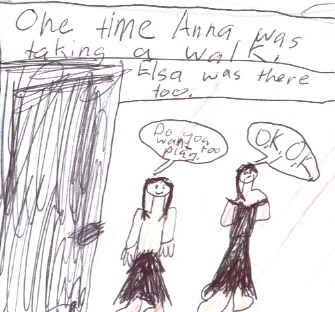 One time Anna was
taking a walk.
Elsa was there
too.
Do you
want too
play.
O.K, O,K